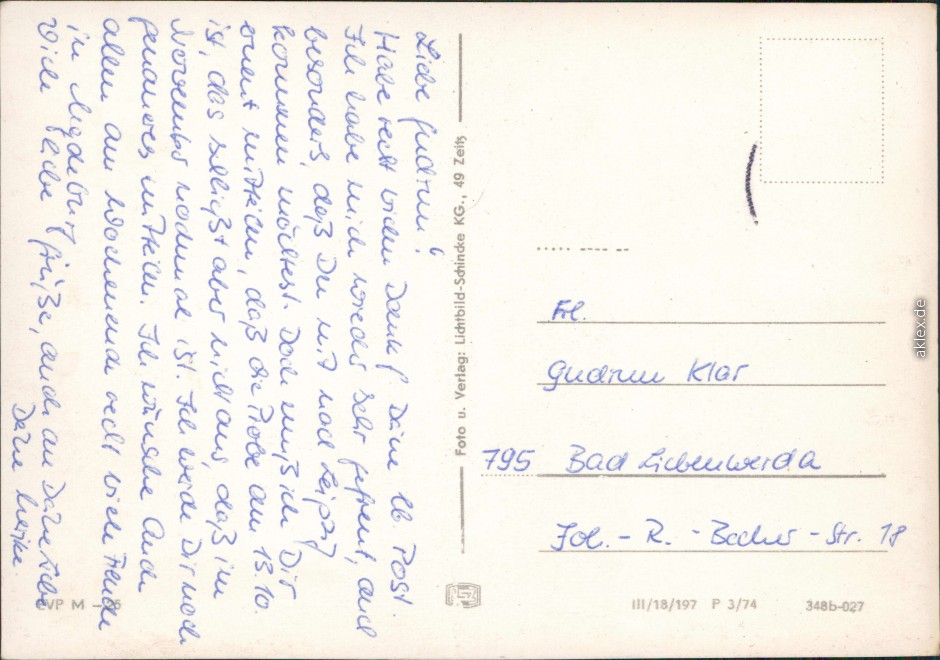 Liebe Gudrun!
Habe recht vielen Dank f. Deine lb. Post.
Ich habe mich wieder sehr gefreut, auch
besonders, daß Du mit nach Leipzig
kommen möchtest. Doch muß ich Dir
erneut mitteilen, daß die Probe am 13.10.
ist, das schließt aber nicht aus, daß im
November nochmal ist. Ich werde Dir noch
genaueres mitteilen. Ich wünsche Euch
allen am Wochenende recht viele Freude
in Magdeburg
Viele liebe Grüße, auch an Deine Lieben
Deine
Foto u. Verlag: Lichtbild-Schincke KG., 49 Zeitz
Frl.
Gudrun Klar
795 Bad Liebenwerda
Joh.-R.-Becher-Str. 18
VP M
III/18/197 P 3/74 348b-027
aklex.de